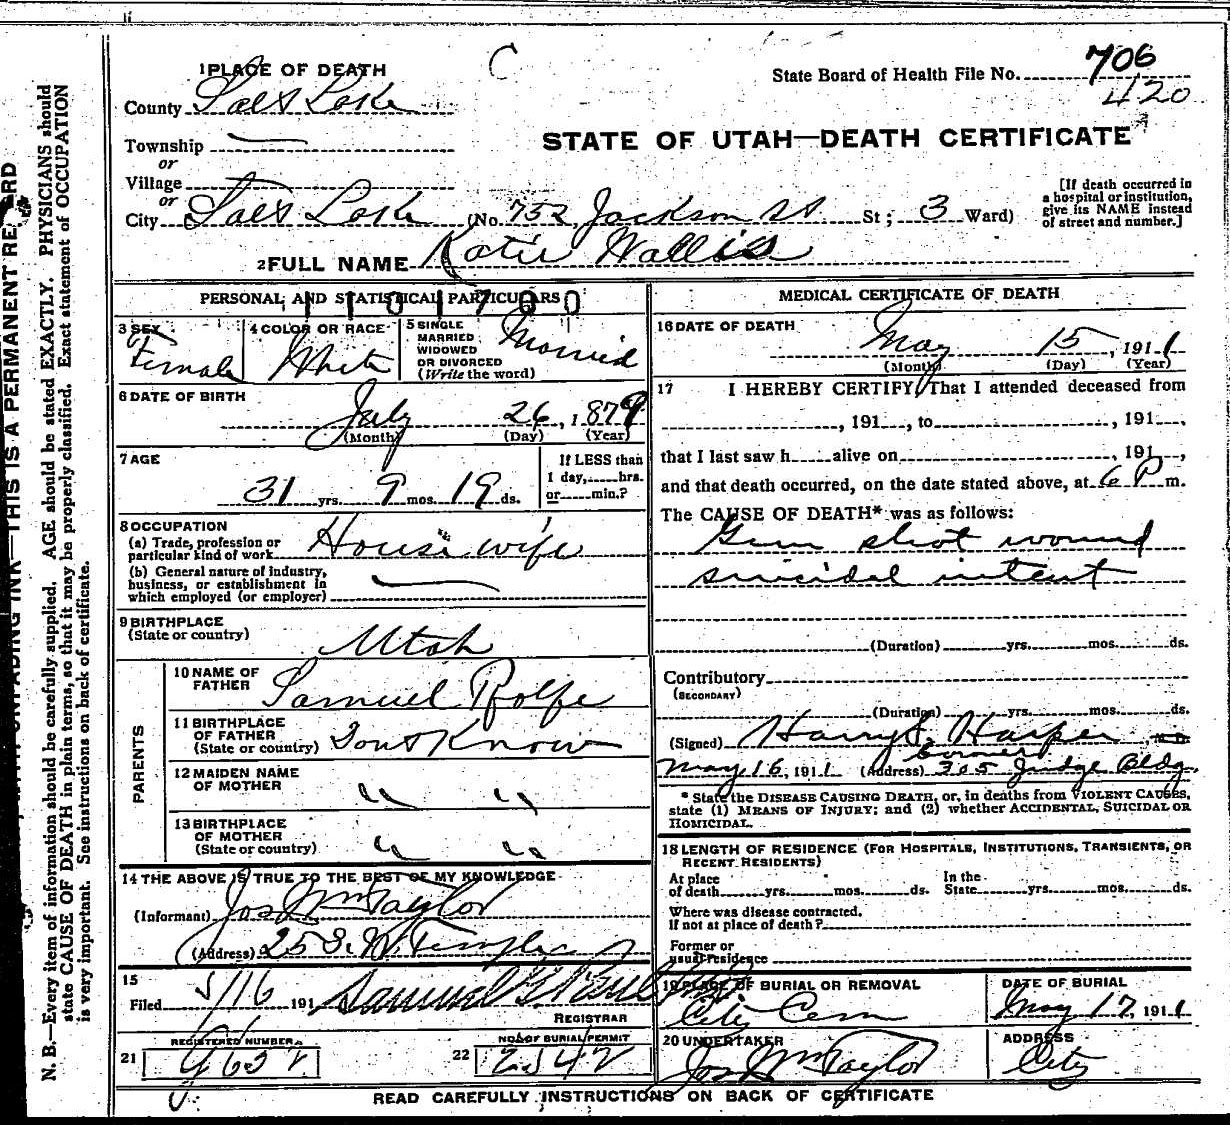 706
420
C
State Board of Health File No.
STATE OF UTAH—DEATH CERTIFICATE
1 PLACE OF DEATH
County Salt Lake
Township —
or
Village
or
City Salt Lake (No. 752, Jackson St St; 3 Ward)
[If death occurred in a hospital or institution, give its NAME instead of street and number.]
2 FULL NAME Katie Wallis
PERSONAL AND STATISTICAL PARTICULARS
1101700
3 SEX Female
4 COLOR OR RACE White
5 SINGLE MARRIED WIDOWED OR DIVORCED (Write the word) Married
6 DATE OF BIRTH
July 26, 1879
(Month) (Day) (Year)
7 AGE
31 yrs. 9 mos. 19 ds.
If LESS than 1 day,......hrs. or......min.?
8 OCCUPATION
(a) Trade, profession or particular kind of work House wife
(b) General nature of industry, business, or establishment in which employed (or employer) —
9 BIRTHPLACE
(State or country) Utah
PARENTS
10 NAME OF FATHER Samuel Rolfe
11 BIRTHPLACE OF FATHER (State or country) Dont Know
12 MAIDEN NAME OF MOTHER " "
13 BIRTHPLACE OF MOTHER (State or country) " "
14 THE ABOVE IS TRUE TO THE BEST OF MY KNOWLEDGE
(Informant) Jos Wm Taylor
(Address) 25 S. W. Temple
15
Filed 5/16 191
REGISTRAR
REGISTERED NUMBER
21
NO. OF BURIAL PERMIT
22
MEDICAL CERTIFICATE OF DEATH
16 DATE OF DEATH
May 15, 1911
(Month) (Day) (Year)
17 I HEREBY CERTIFY, That I attended deceased from
, 191 , to , 191 ,
that I last saw h alive on , 191 ,
and that death occurred, on the date stated above, at 6 P m.
The CAUSE OF DEATH* was as follows:
Gun shot wound
suicidal intent
(Duration) yrs. mos. ds.
Contributory
(SECONDARY)
(Duration) yrs. mos. ds.
(Signed) Harry S. Harper M. D.
Coroner
May 16, 1911 (Address) 305 Judge Bldg.
* State the DISEASE CAUSING DEATH, or, in deaths from VIOLENT CAUSES, state (1) MEANS OF INJURY; and (2) whether ACCIDENTAL, SUICIDAL OR HOMICIDAL.
18 LENGTH OF RESIDENCE (FOR HOSPITALS, INSTITUTIONS, TRANSIENTS, OR RECENT RESIDENTS)
At place of death yrs. mos. ds. In the State yrs. mos. ds.
Where was disease contracted, If not at place of death?
Former or usual residence
19 PLACE OF BURIAL OR REMOVAL
City Cem
DATE OF BURIAL
May 17, 1911
20 UNDERTAKER
Jos Wm Taylor
ADDRESS
City
READ CAREFULLY INSTRUCTIONS ON BACK OF CERTIFICATE
UNFADING INK—THIS IS A PERMANENT RECORD
N. B.—Every item of information should be carefully supplied. AGE should be stated EXACTLY. PHYSICIANS should
state CAUSE OF DEATH in plain terms, so that it may be properly classified. Exact statement of OCCUPATION
is very important. See instructions on back of certificate.